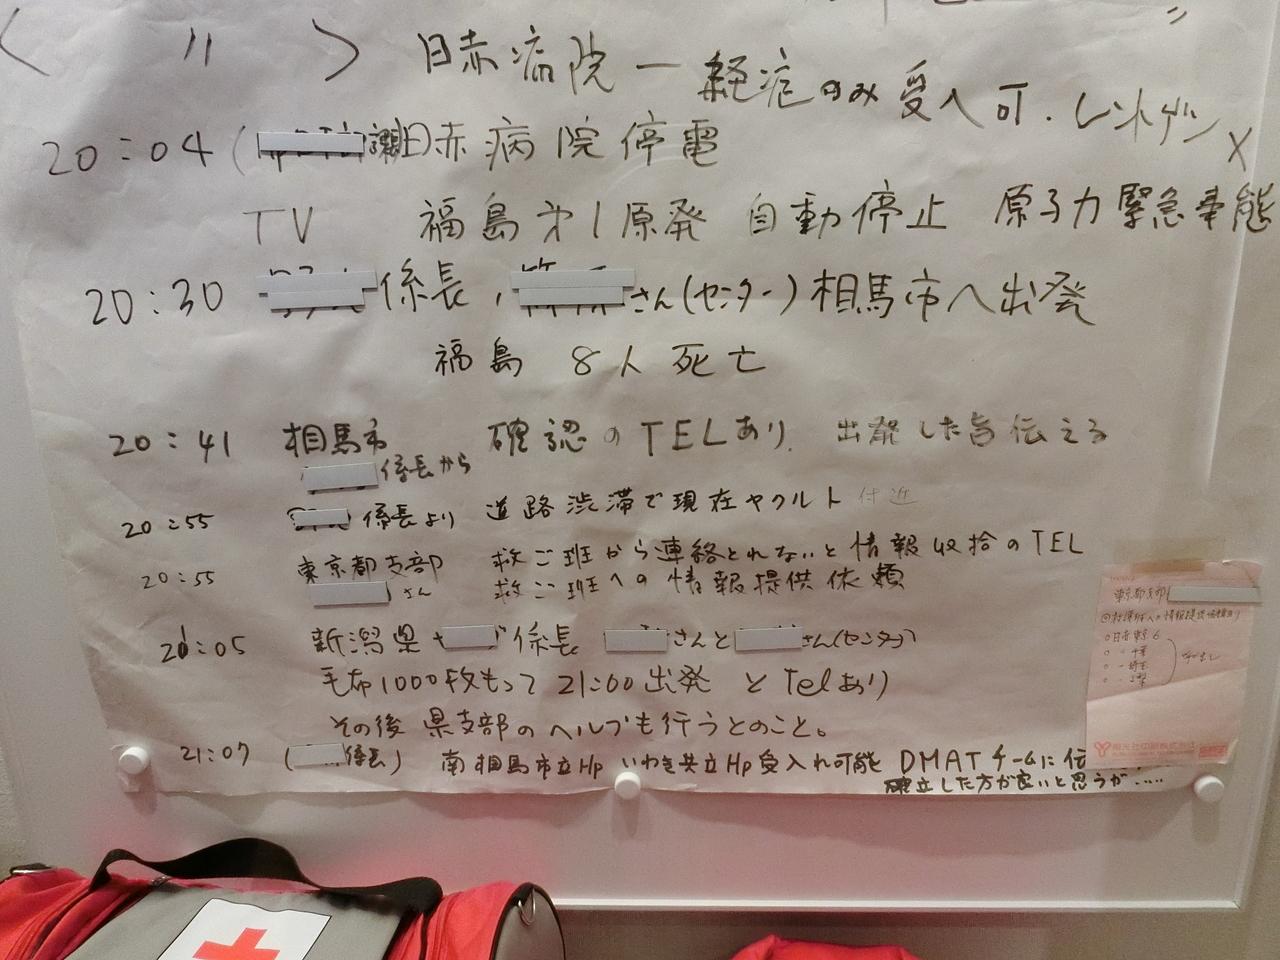 〈 〃 〉 日赤病院 ー 軽症のみ受入可. レントゲン×
20:04 ( 課長)日赤病院停電
TV 福島第1原発 自動停止 原子力緊急事態
20:30 係長, さん(センター)相馬市へ出発
福島 8人死亡
20:41 相馬市 確認のTELあり. 出発した旨伝える
係長から
20:55 係長より 道路渋滞で現在ヤクルト付近
20:55 東京都支部 救ご班から連絡とれないと情報収拾のTEL
さん 救ご班への情報提供依頼
21:05 新潟県 係長 さんと さん(センター)
毛布1000枚もって21:00出発 とTelあり
その後 県支部のヘルプも行うとのこと。
21:07 ( 係長) 南相馬市立Hp いわき共立Hp受入れ可能 DMATチームに伝
確立した方が良いと思うが.....
東京都支部
○日赤東京6
○ 〃 千葉
○ 〃 埼玉